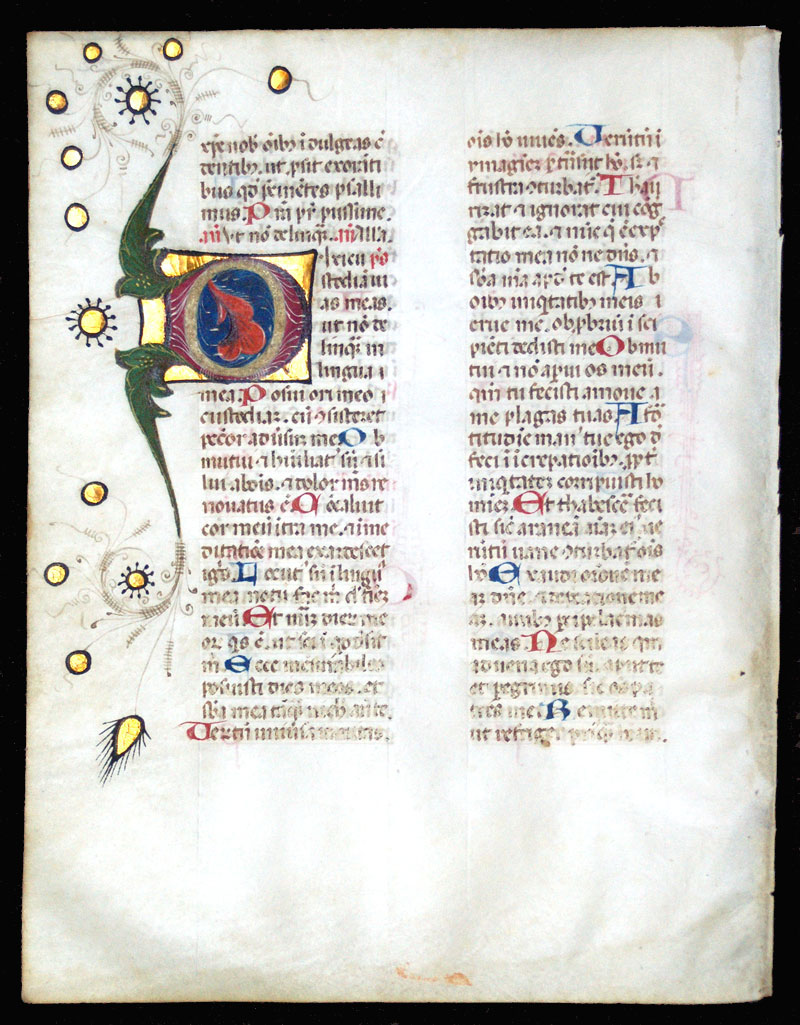 mus. P̄m pr̄ piissime.
añ Vt nō delinqā. añ alla
ixi cu p̄s
stodiā ui
as meas.
ut nō de
linquā in
lingua
mea. Posui ori meo
custodiaꝫ. cū ↄsisteret
peccōr aduersū me O b
mutui ⁊ hūiliatꝰ sū ⁊ si
lui a bōis. ⁊ dolor mꝰ re
novatus ē C ōcaluit
cor meū ītra me. ⁊ ī me
ditatiōe mea exardescet
ignis L ocutꝰ sū ī lingua
mea notū fac m̄ dn̄e finē
meū Et nūꝝ dieꝝ meo
oꝝ qs ē. ut sciā qd desit
m̄ Ecce mensurabiles
posuisti dies meos. et
sb̄a mea tāqꝫ nichil ante te.
Verūtn̄ universa vanitas.
ois hō vivēs. Verūtn̄ ī
ymagine ptrāsit hō. sꝫ ⁊
frustra ↄturbatꝰ. Thau
rizat ⁊ ignorat cui cōg
gabit ea. ⁊ nūc q̄ ē exp̄c
tatio mea nōne dn̄s. ⁊
sb̄a mā apd̄ te est A b
oībꝫ iniqtatibꝫ meis
erue me. obpbriū īsi
piēti dedisti me O bmu
tui ⁊ nō apui os meū.
qm̄ tu fecisti amove a
me plagas tuas A fō
titudīe manꝰ tue ego d
feci ī īcrepatiōibꝫ. ppt̄
iniqtatez corripuisti ho
minez Et thabescēe feci
sti sic̄ araneā aīaꝫ eiꝰ ve
rūtn̄ vane ↄturbatꝰ ois
hō E xaudi orōneꝫ me
aꝫ dn̄e ⁊ dep̄cationeꝫ me
aꝫ. auribꝫ pcipe lacrimas
meas. Ne sileas qm̄
advena ego sū. apud te
et pegrinus. sic̄ oēs pa
tres mei R emitte m̄
ut refrigerer priusqʒ habeā.